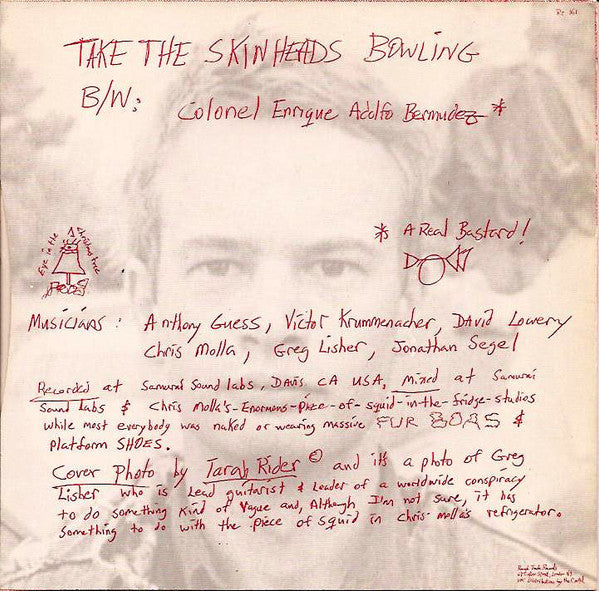 Rt 161
TAKE THE SKINHEADS BOWLING
B/W:
Colonel Enrique Adolfo Bermudez *
Eye in the Christmas tree
RECORDS
* A Real Bastard!
Musicians: Anthony Guess, Victor Krummenacher, David Lowery
Chris Molla, Greg Lisher, Jonathan Segel
Recorded at Samurai Sound labs, Davis CA USA, Mixed at Samurai
Sound Labs & Chris Molla's-Enormous-piece-of-squid-in-the-fridge-studios
while most everybody was naked or wearing massive FUR BOAS &
platform SHOES.
Cover Photo by Tarah Rider © and it's a photo of Greg
Lisher who is Lead guitarist & Leader of a worldwide conspiracy
to do something kind of vague and, Although I'm not sure, it has
something to do with the piece of squid in chris molla's refrigerator.
Rough Trade Records
London N1
Distribution by the Cartel